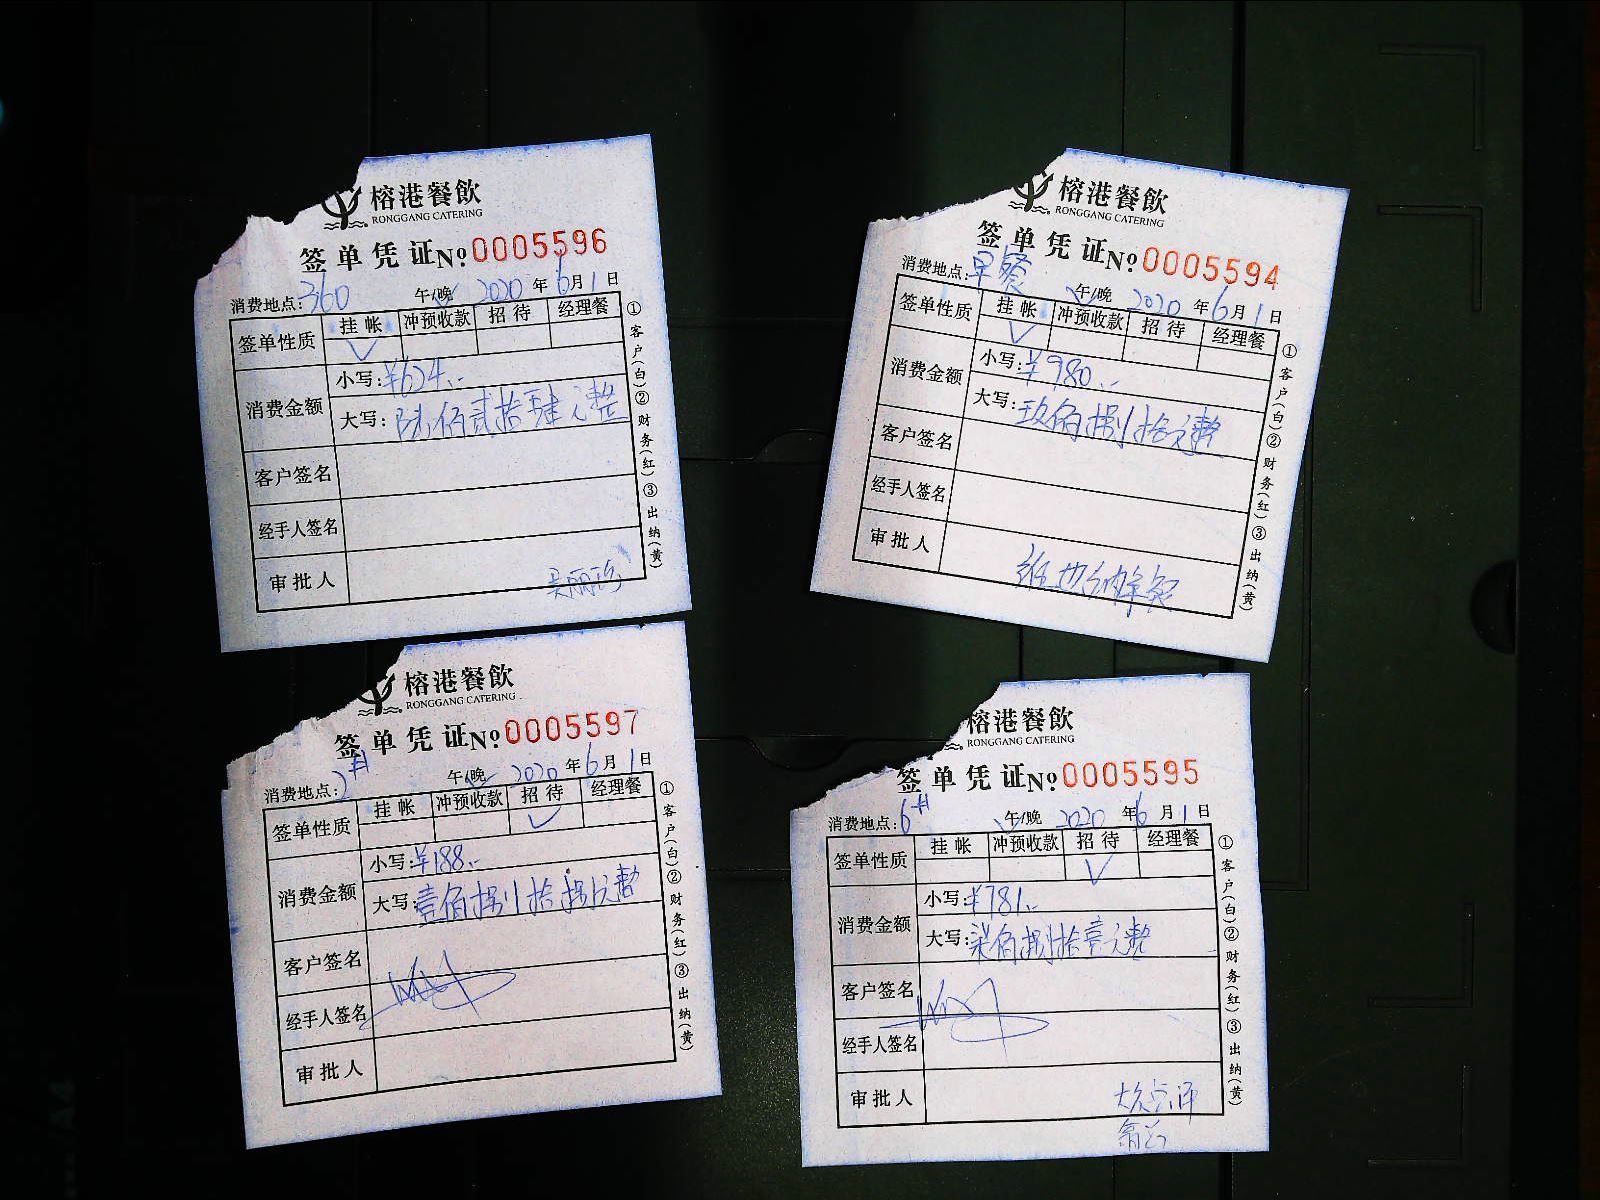 榕港餐飲
RONGGANG CATERING
签单凭证 No 0005596
消费地点: 360 午/晚 2020 年 6 月 1 日
签单性质 挂帐 冲预收款 招待 经理餐
消费金额
小写: ¥624.-
大写: 陆佰贰拾肆元整
客户签名
经手人签名
审批人 吴丽珍
①客户(白)②财务(红)③出纳(黄)
榕港餐飲
RONGGANG CATERING
签单凭证 No 0005594
消费地点: 早餐 午/晚 2020 年 6 月 1 日
签单性质 挂帐 冲预收款 招待 经理餐
消费金额
小写: ¥980.-
大写: 玖佰捌拾元整
客户签名
经手人签名
审批人 维也纳早餐
①客户(白)②财务(红)③出纳(黄)
榕港餐飲
RONGGANG CATERING
签单凭证 No 0005597
消费地点: 2# 午/晚 2020 年 6 月 1 日
签单性质 挂帐 冲预收款 招待 经理餐
消费金额
小写: ¥188.-
大写: 壹佰捌拾捌元整
客户签名
经手人签名
审批人
①客户(白)②财务(红)③出纳(黄)
榕港餐飲
RONGGANG CATERING
签单凭证 No 0005595
消费地点: 6# 午/晚 2020 年 6 月 1 日
签单性质 挂帐 冲预收款 招待 经理餐
消费金额
小写: ¥781.-
大写: 柒佰捌拾壹元整
客户签名
经手人签名
审批人
①客户(白)②财务(红)③出纳(黄)